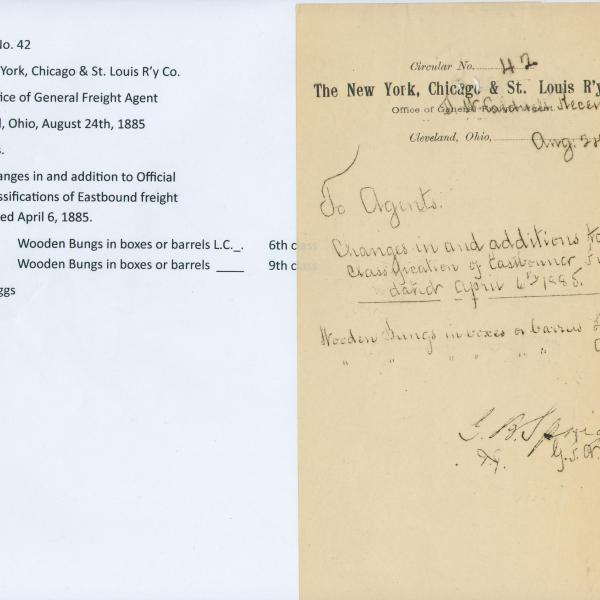 No. 42
York, Chicago & St. Louis R'y Co.
ice of General Freight Agent
d, Ohio, August 24th, 1885
s.
anges in and addition to Official
ssifications of Eastbound freight
ed April 6, 1885.
Wooden Bungs in boxes or barrels L.C._. 6th class
Wooden Bungs in boxes or barrels ____ 9th class
ggs
Circular No. 42
The New York, Chicago & St. Louis R'y
Office of General Freight Agent.
Cleveland, Ohio, Aug. 24
To Agents.
Changes in and additions to
Classification of Eastbound
dated April 6th 1885.
Wooden Bungs in boxes or barrels
" " " " "
G. B. Sprig
G. F. A.